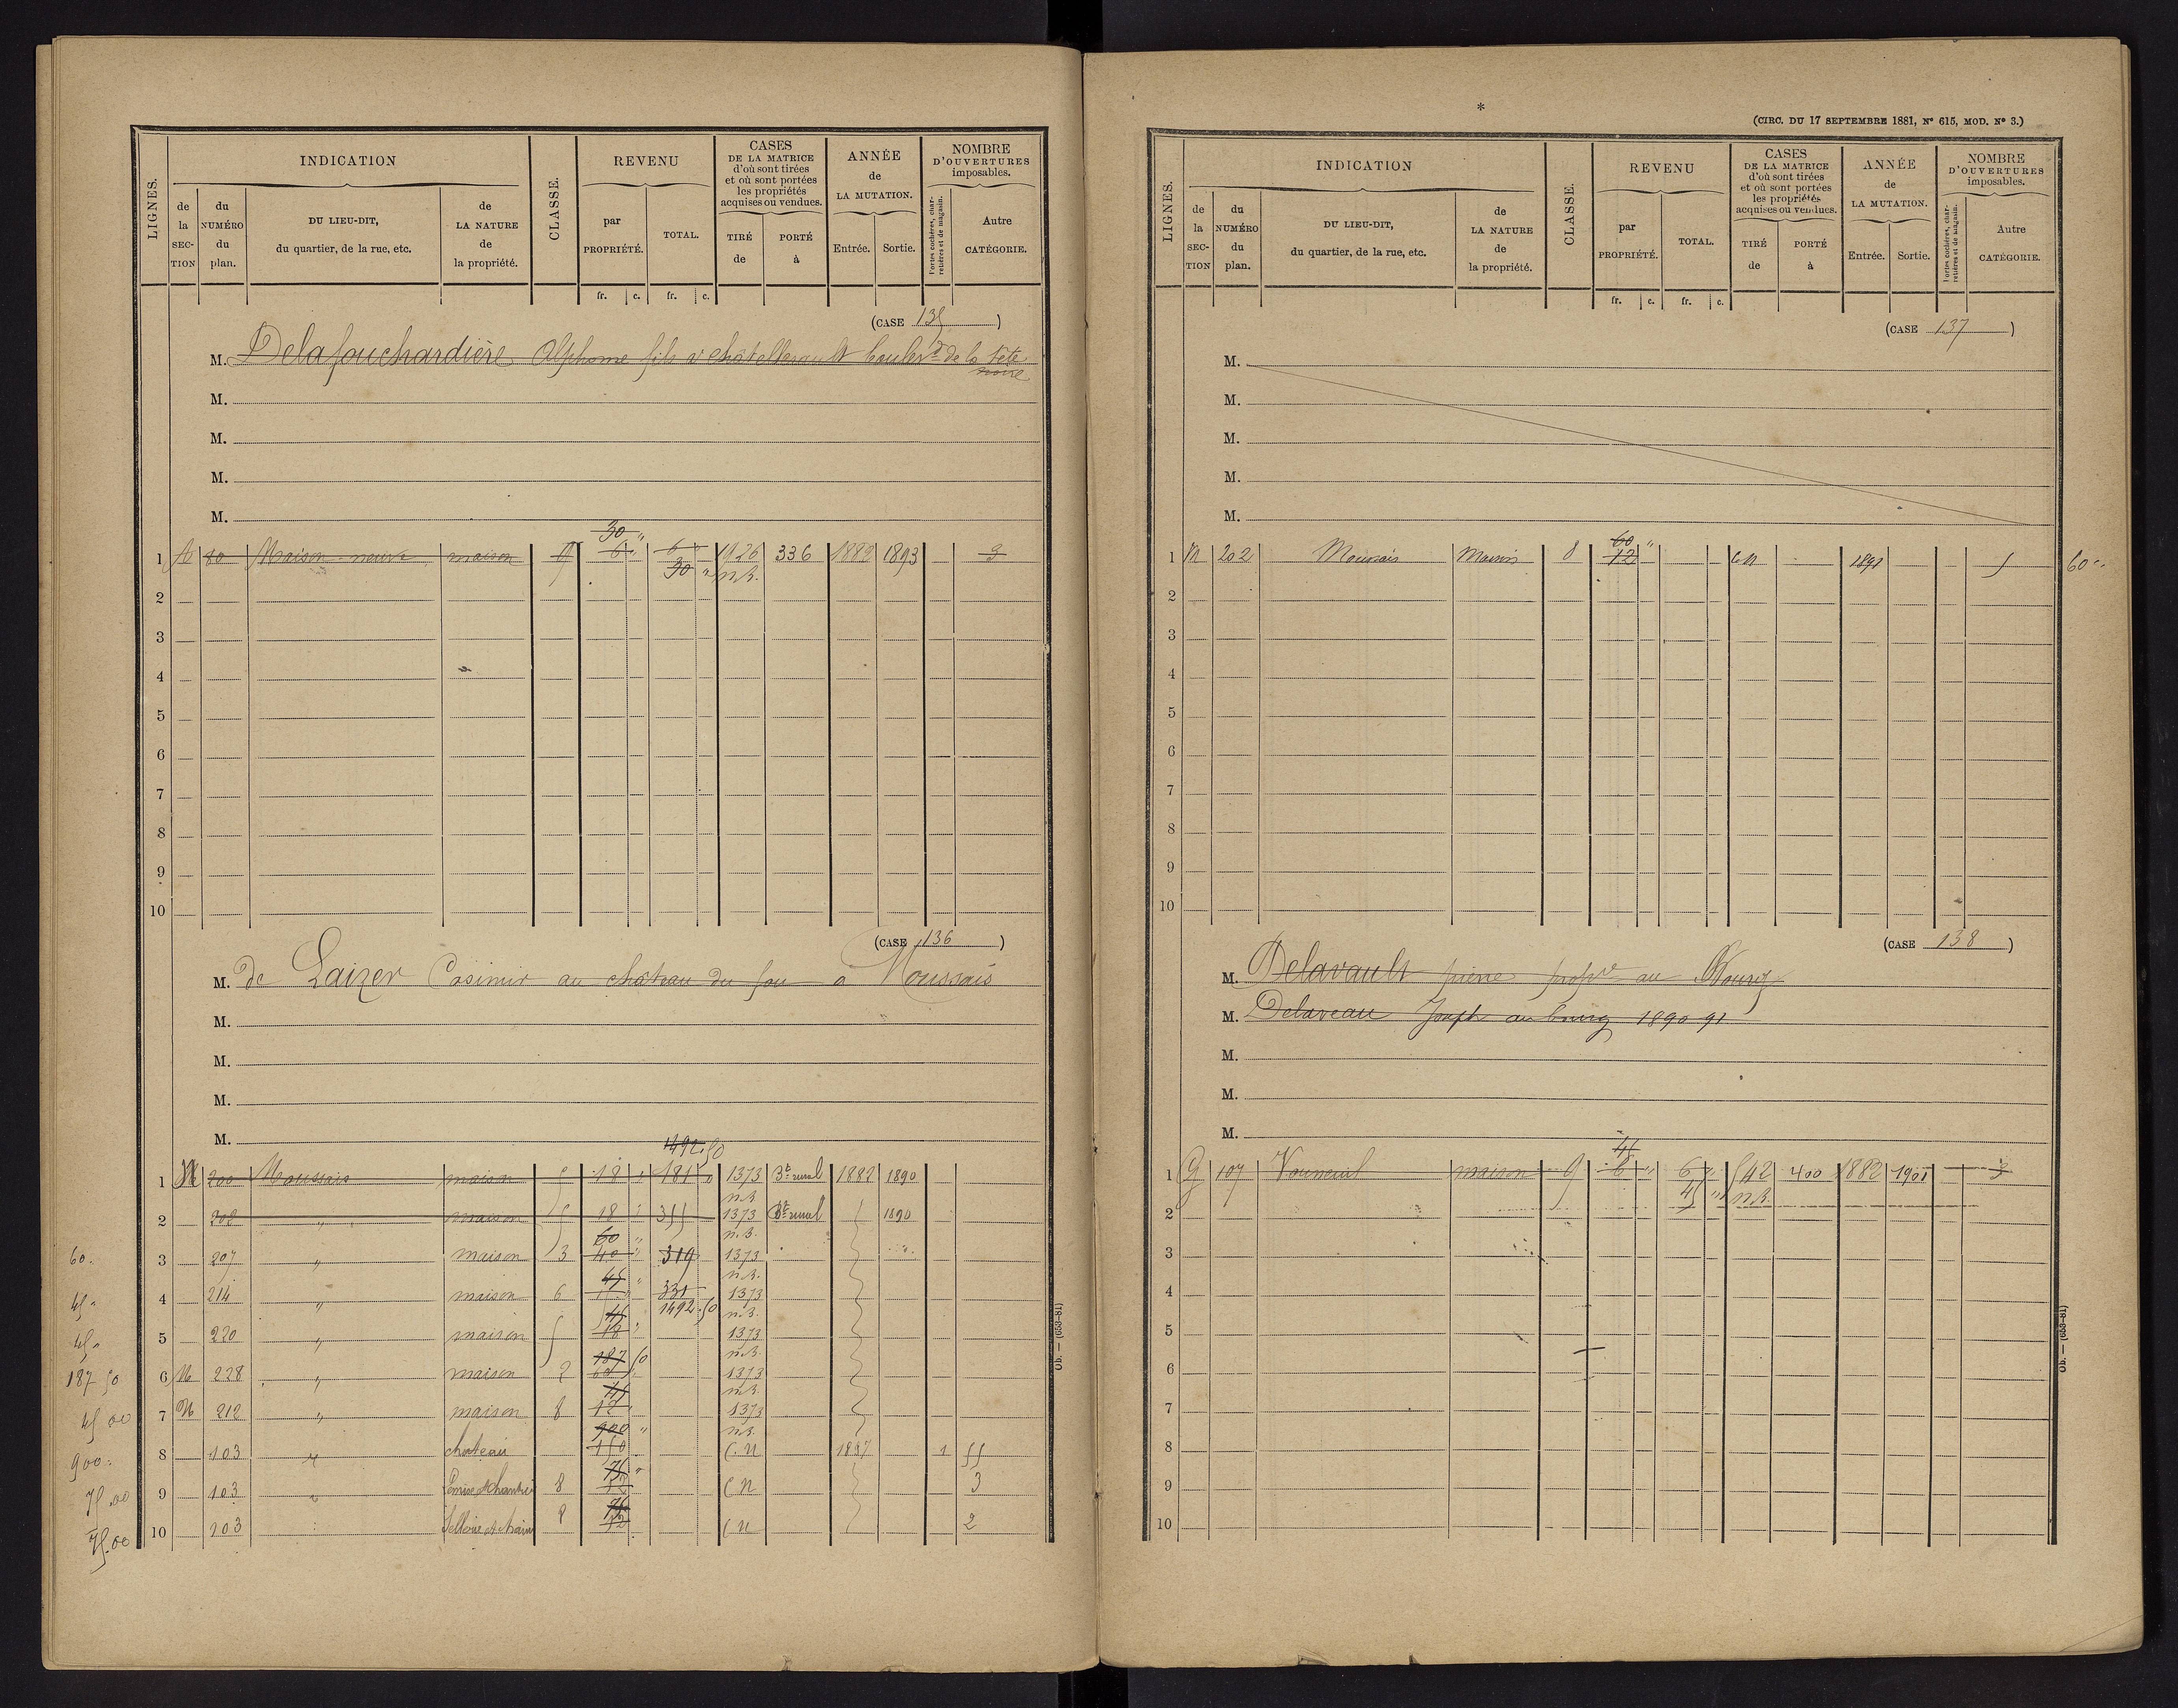 LIGNES.
INDICATION
de la SECTION
du NUMÉRO du plan.
DU LIEU-DIT, du quartier, de la rue, etc.
de LA NATURE de la propriété.
CLASSE.
REVENU
par PROPRIÉTÉ.
TOTAL.
CASES DE LA MATRICE d'où sont tirées et où sont portées les propriétés acquises ou vendues.
TIRÉ de
PORTÉ à
ANNÉE de LA MUTATION.
Entrée.
Sortie.
NOMBRE D'OUVERTURES imposables.
Portes cochères, charretières et de magasin.
Autre CATÉGORIE.
fr. c. fr. c.
(CASE 135)
M. Delafouchardière Alphonse fils à chatellerault boulevd de la tête
noire
M.
M.
M.
M.
30 "
1 80 Maison neuve maison 6 " 6 " 336 1882 1893 3
30 " n.B.
2
3
4
5
6
7
8
9
10
(CASE 136)
M. de Laizer Casimir au château du fou à Moussais
M.
M.
M.
M.
1492.50
1 M 200 Moussais maison 5 18 " 181 " 1373 Bt rural 1882 1890
n.B.
2 202 " maison 5 18 " 355 1373 Bt rural 1890
60 " n.B.
60. 3 207 " maison 3 40 " 319 1373
45 " n.B.
45 " 4 214 " maison 6 331 1373
45 1492.50 n.B.
45 " 5 220 " maison 5 18 " 1373
187 50 n.B.
187 50 6 M 228 " maison 2 60 " 1373
45 n.B.
45 00 7 M 212 " maison 8 12 " 1373
900 " n.B.
900 " 8 103 " chateau 150 C.N 1887 1 55
75 "
75.00 9 103 " 8 C N 3
75
75.00 10 203 8 12 C N 2
Ob. — (653-81)
*
(CIRC. DU 17 SEPTEMBRE 1881, N° 615, MOD. N° 3.)
LIGNES.
INDICATION
de la SECTION
du NUMÉRO du plan.
DU LIEU-DIT, du quartier, de la rue, etc.
de LA NATURE de la propriété.
CLASSE.
REVENU
par PROPRIÉTÉ.
TOTAL.
CASES DE LA MATRICE d'où sont tirées et où sont portées les propriétés acquises ou vendues.
TIRÉ de
PORTÉ à
ANNÉE de LA MUTATION.
Entrée.
Sortie.
NOMBRE D'OUVERTURES imposables.
Portes cochères, charretières et de magasin.
Autre CATÉGORIE.
fr. c. fr. c.
(CASE 137)
M.
M.
M.
M.
M.
60 "
1 M 202 Moussais Maison 8 12 C N 1891 5 60 "
2
3
4
5
6
7
8
9
10
(CASE 138)
M. Delavault pierre propre au Bourg
M. Delaveau Joseph au bourg 1890-91
M.
M.
M.
45
1 G 107 Vouneuil maison 9 6 " 6 " 542 400 1882 1901 3
45 " n.B.
2
3
4
5
6
7
8
9
10
Ob. — (653-81)